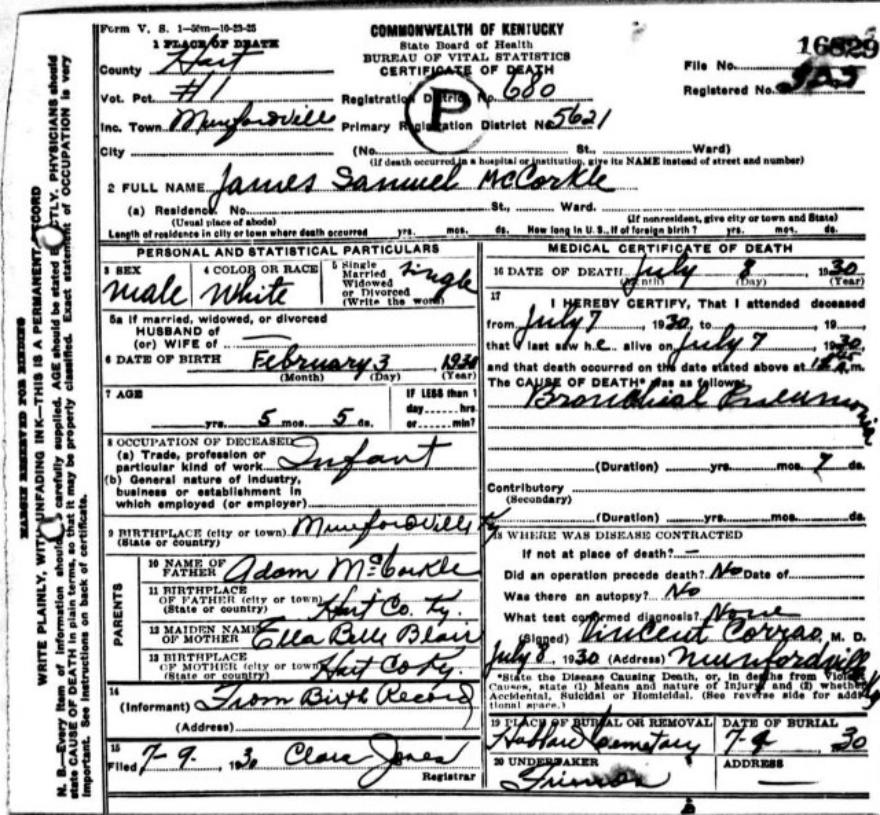 Form V. S. 1—50m—10-23-25
COMMONWEALTH OF KENTUCKY
State Board of Health
BUREAU OF VITAL STATISTICS
CERTIFICATE OF DEATH
File No. 16829
Registered No.
1 PLACE OF DEATH
County Hart
Vot. Pct. #1
Registration District No. 680
P
Inc. Town Munfordville
Primary Registration District No. 5621
City
(No. St., Ward)
(If death occurred in a hospital or institution, give its NAME instead of street and number)
2 FULL NAME James Samuel McCorkle
(a) Residence. No. St., Ward.
(Usual place of abode) (If nonresident, give city or town and State)
Length of residence in city or town where death occurred yrs. mos. ds. How long in U. S., if of foreign birth? yrs. mos. ds.
PERSONAL AND STATISTICAL PARTICULARS
3 SEX
male
4 COLOR OR RACE
White
5 Single
Married
Widowed
or Divorced
(Write the word)
single
5a If married, widowed, or divorced
HUSBAND of
(or) WIFE of
6 DATE OF BIRTH February 3 1930
(Month) (Day) (Year)
7 AGE
yrs. 5 mos. 5 ds.
IF LESS than 1
day hrs
or min?
8 OCCUPATION OF DECEASED
(a) Trade, profession or
particular kind of work Infant
(b) General nature of industry,
business or establishment in
which employed (or employer)
9 BIRTHPLACE (city or town) Munfordville Ky
(State or country)
PARENTS
10 NAME OF
FATHER Adam McCorkle
11 BIRTHPLACE
OF FATHER (city or town)
(State or country) Hart Co. Ky.
12 MAIDEN NAME
OF MOTHER Ella Belle Blair
13 BIRTHPLACE
OF MOTHER (city or town)
(State or country) Hart Co Ky.
14
(Informant) From Birth Record
(Address)
15
Filed 7-9, 1930 Clara Jones
Registrar
MEDICAL CERTIFICATE OF DEATH
16 DATE OF DEATH July 8, 1930
(Month) (Day) (Year)
17
I HEREBY CERTIFY, That I attended deceased
from July 7, 1930, to , 19
that I last saw h.e alive on July 7, 1930,
and that death occurred on the date stated above at m.
The CAUSE OF DEATH* was as follows:
Bronchial Pneumonia
(Duration) yrs. mos. 7 ds.
Contributory
(Secondary)
(Duration) yrs. mos. ds.
18 WHERE WAS DISEASE CONTRACTED
If not at place of death? —
Did an operation precede death? No Date of
Was there an autopsy? No
What test confirmed diagnosis? None
(Signed) Vincent Corrao, M. D.
July 8, 1930 (Address) Munfordville Ky
*State the Disease Causing Death, or, in deaths from Violent
Causes, state (1) Means and nature of Injury, and (2) whether
Accidental, Suicidal or Homicidal. (See reverse side for addi-
tional space.)
19 PLACE OF BURIAL OR REMOVAL
Cemetary
DATE OF BURIAL
7-9 30
20 UNDERTAKER
ADDRESS
—
MARGIN RESERVED FOR BINDING
WRITE PLAINLY, WITH UNFADING INK—THIS IS A PERMANENT RECORD
N. B.—Every item of information should carefully supplied. AGE should be stated EXACTLY. PHYSICIANS should
state CAUSE OF DEATH in plain terms, so that it may be properly classified. Exact statement of OCCUPATION is very
important. See instructions on back of certificate.